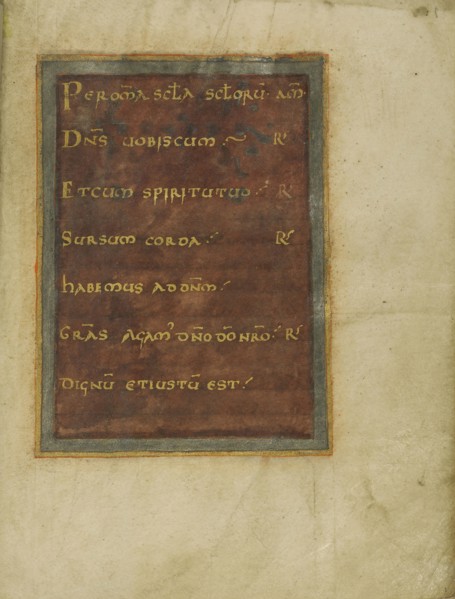 PER OM̄A SCL̄A SCL̄ORŪ· AM̄·
DN̄S UOBISCUM R̸
ETCUM SPIRITUTUO R̸
SURSUM CORDA R̸
hABEMUS ADDN̄M
GRĀS AGAM' DN̄O DŌ NR̄O R̸
DIGNŪ ETIUSTŪ EST